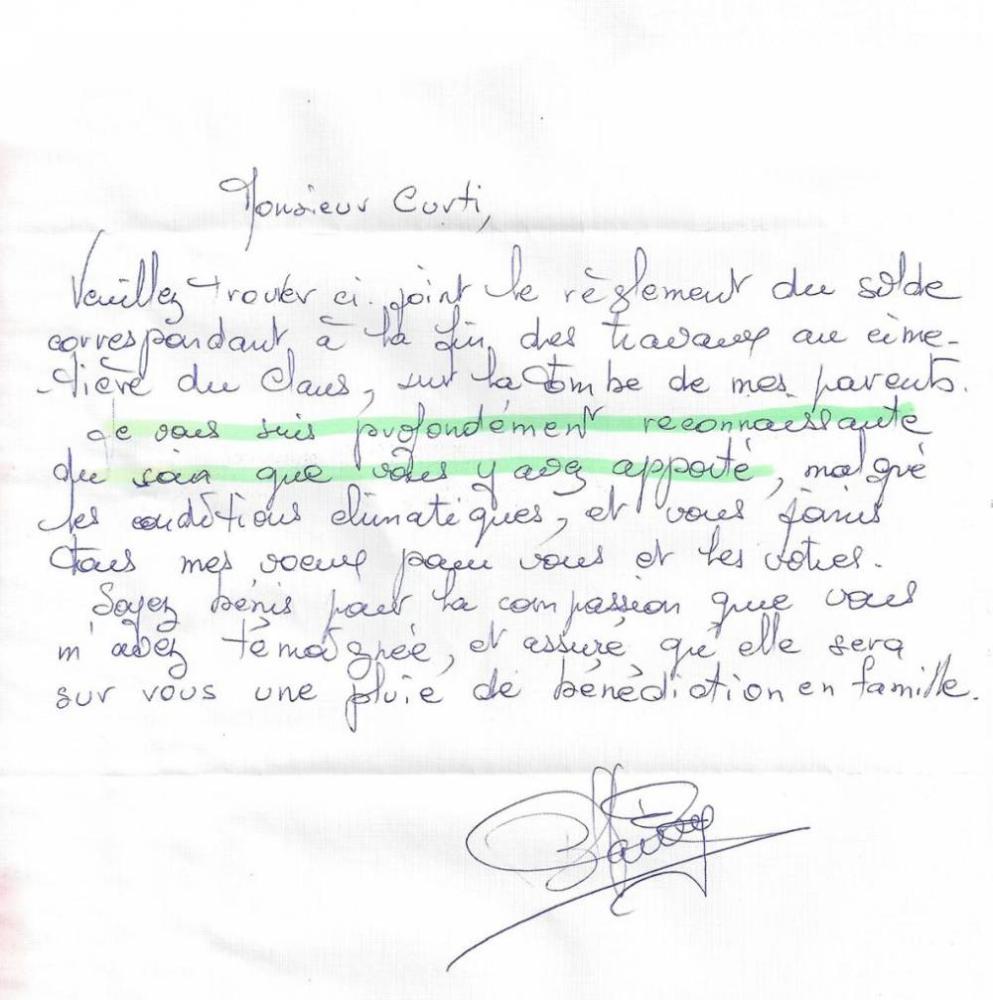 Monsieur Curti,
Veuillez trouver ci-joint le règlement du solde
correspondant à la fin des travaux au cime-
-tière du Claus, sur la tombe de mes parents.
Je vous suis profondément reconnaissante
du soin que vous y avez apporté, malgré
les conditions climatiques, et vous joins
tous mes voeux pour vous et les vôtres.
Soyez bénis pour la compassion que vous
m'avez témoignée, et assuré qu'elle sera
sur vous une pluie de bénédiction en famille.